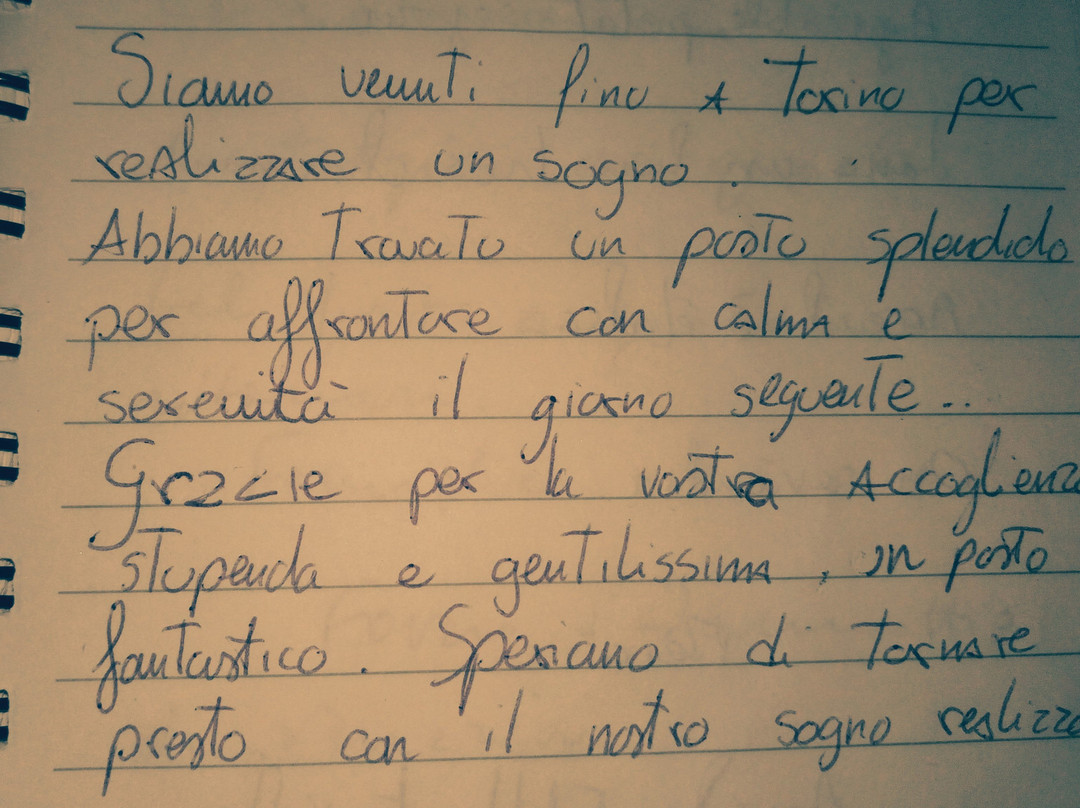 Siamo venuti fino A Torino per
reAlizzare un sogno.
Abbiamo Trovato un posto splendido
per affrontare con calma e
serenità il giorno seguente..
Grazie per la vostra Accoglienza
stupenda e gentilissima, un posto
fantastico. Speriamo di Tornare
presto con il nostro sogno realizza